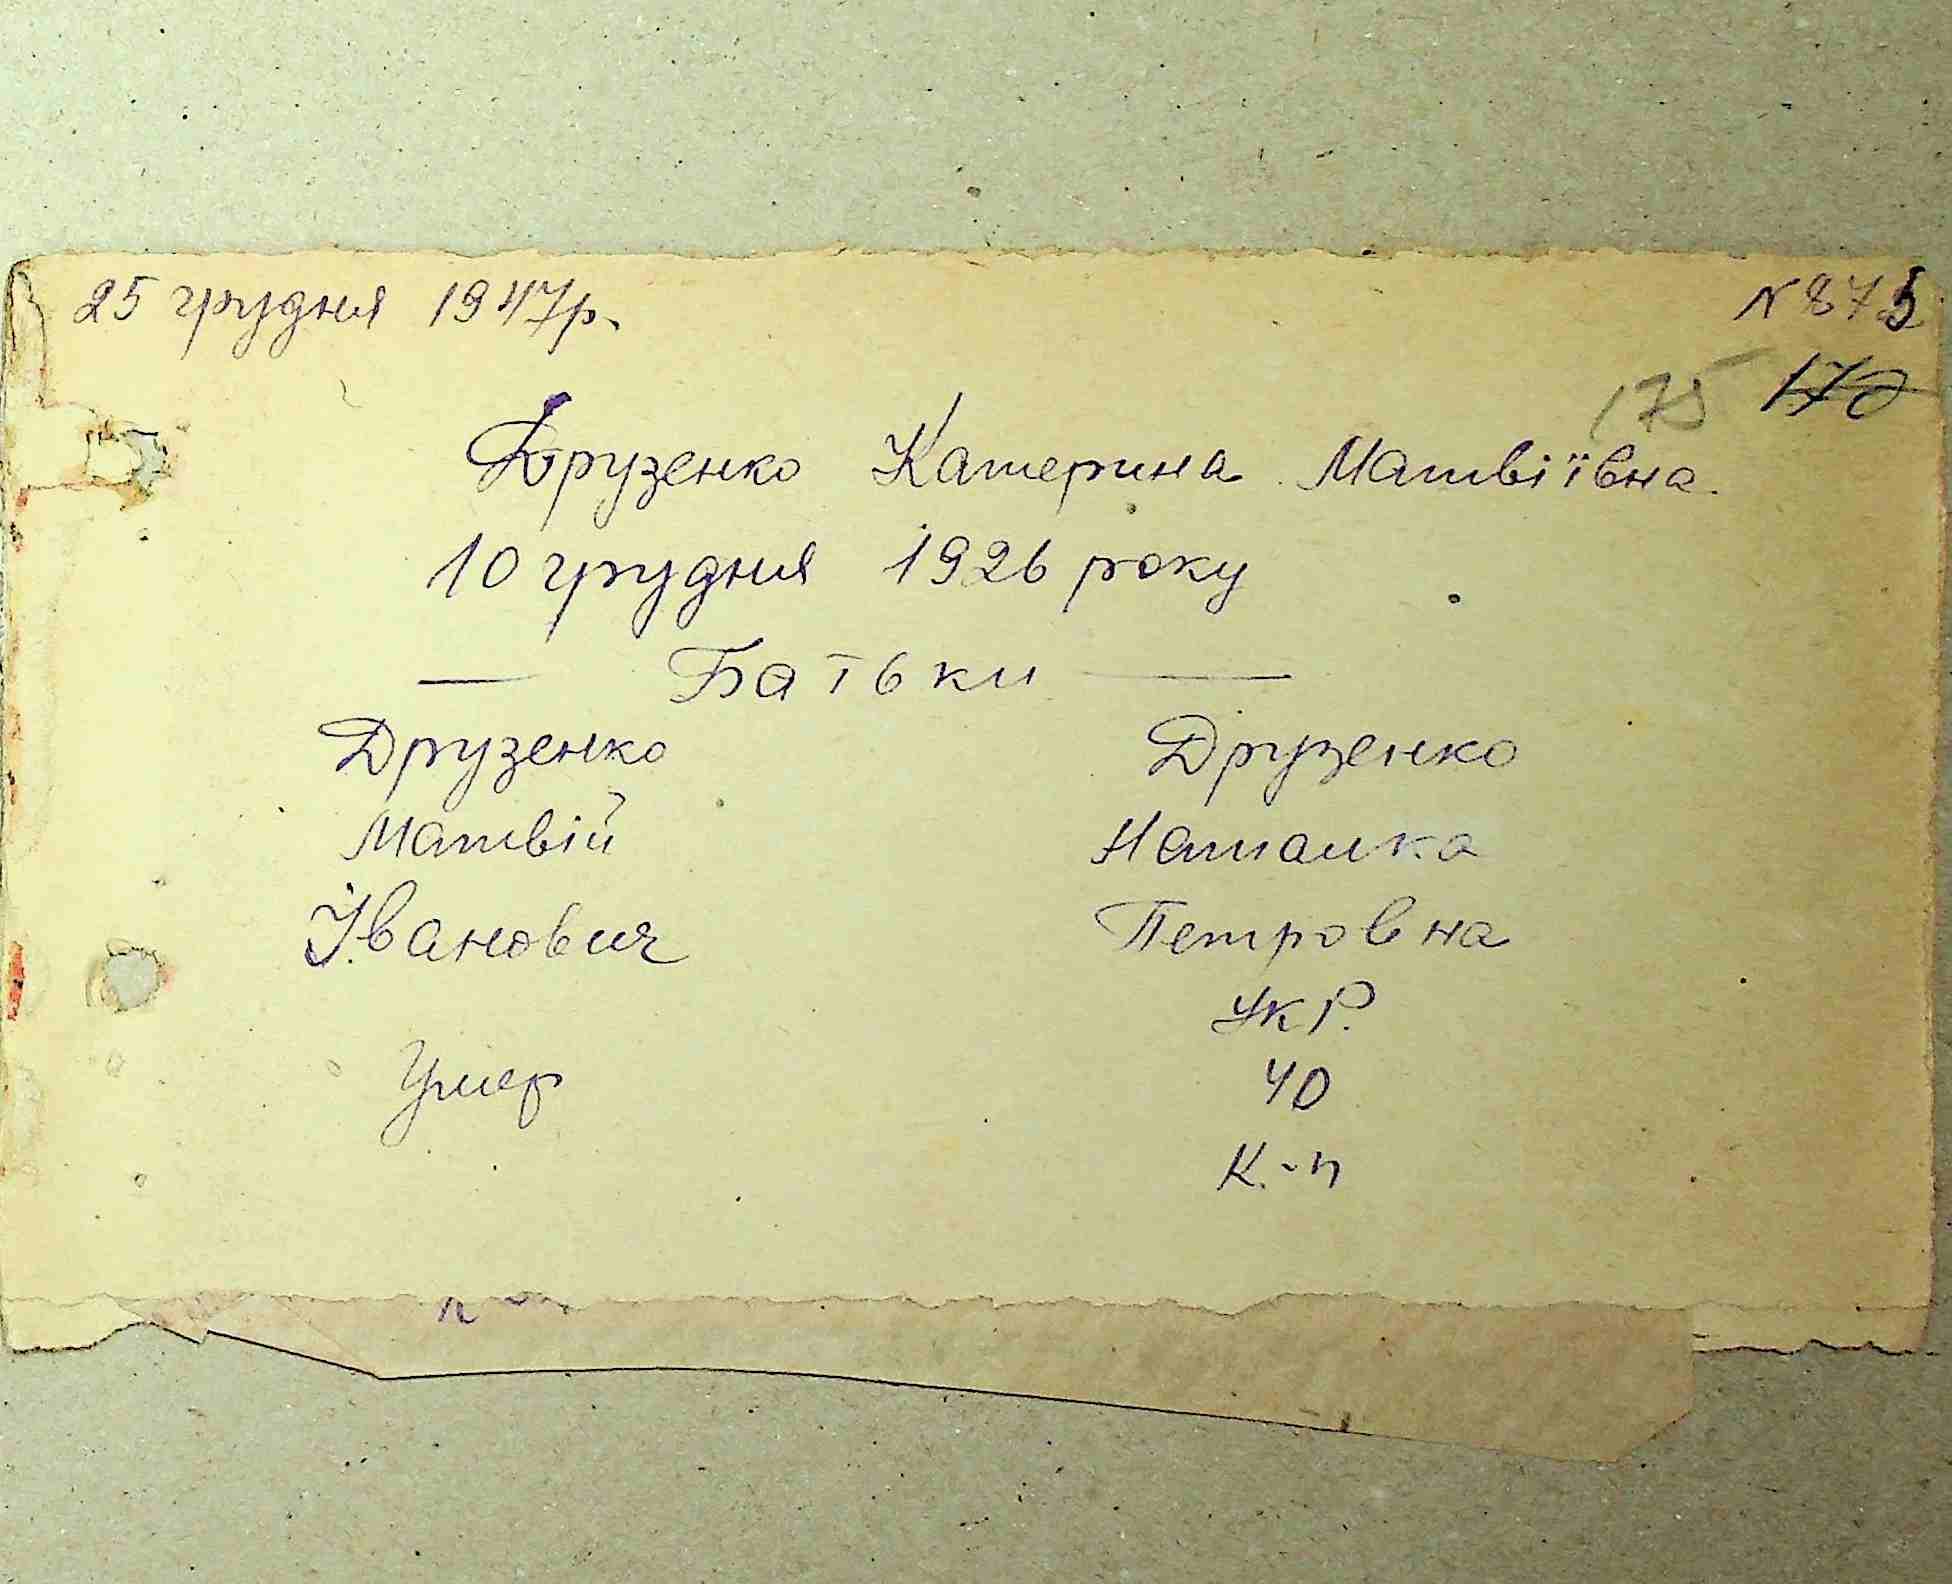 25 грудня 1947р.
N 875
175
Друзенко Катерина Матвіївна.
10 грудня 1926 року
— Батьки —
Друзенко Друзенко
Матвій Наталка
Іванович Петровна
Укр.
Умер 40
К.-п